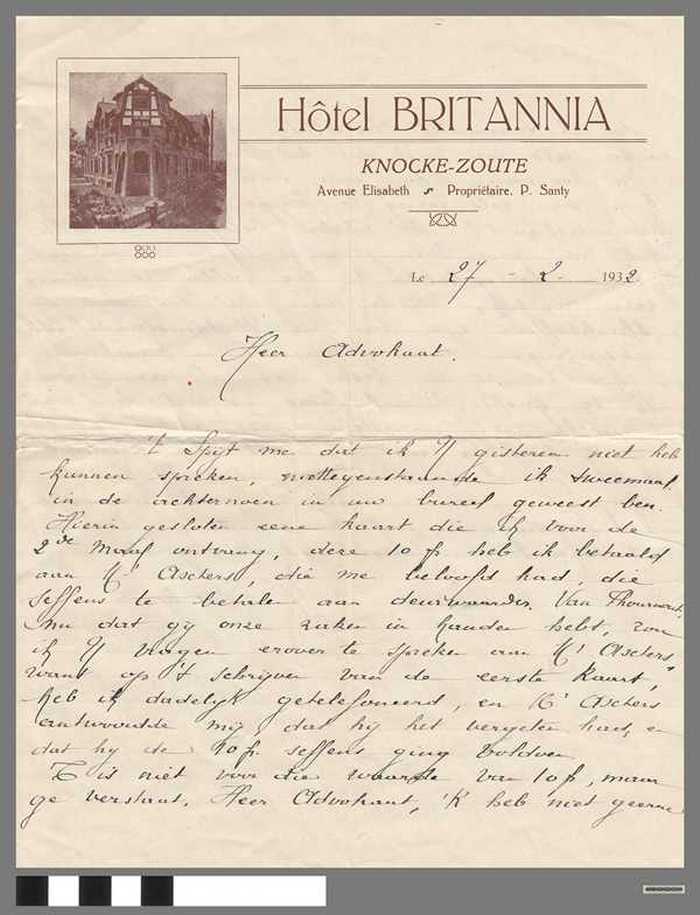 Hôtel BRITANNIA
KNOCKE-ZOUTE
Avenue Elisabeth Propriétaire, P. Santy
Le 27 - 2 - 1932
Heer Advokaat.
't Spijt me dat ik U gisteren niet heb
kunnen spreken, niettegenstaande ik tweemaal
in de achternoen in uw bureel geweest ben.
Hierin gesloten eene kaart die ik voor de
2de maal ontvang, deze 10 fr heb ik betaald
aan Mr Aschers, die me beloofd had, die
seffens te betalen aan deurwaarder Van Thournout.
Nu dat gij onze zaken in handen hebt, zou
ik U vragen erover te spreken aan Mr Aschers,
want op 't schrijven van de eerste kaart,
heb ik dadelijk getelefoneerd, en Mr Aschers
antwoordde mij, dat hij het vergeten had, en
dat hij de 10 fr. seffens ging voldoen
'T is niet voor die waarde van 10 fr, maar
ge verstaat, Heer Advokaat, 'k heb niet geerne